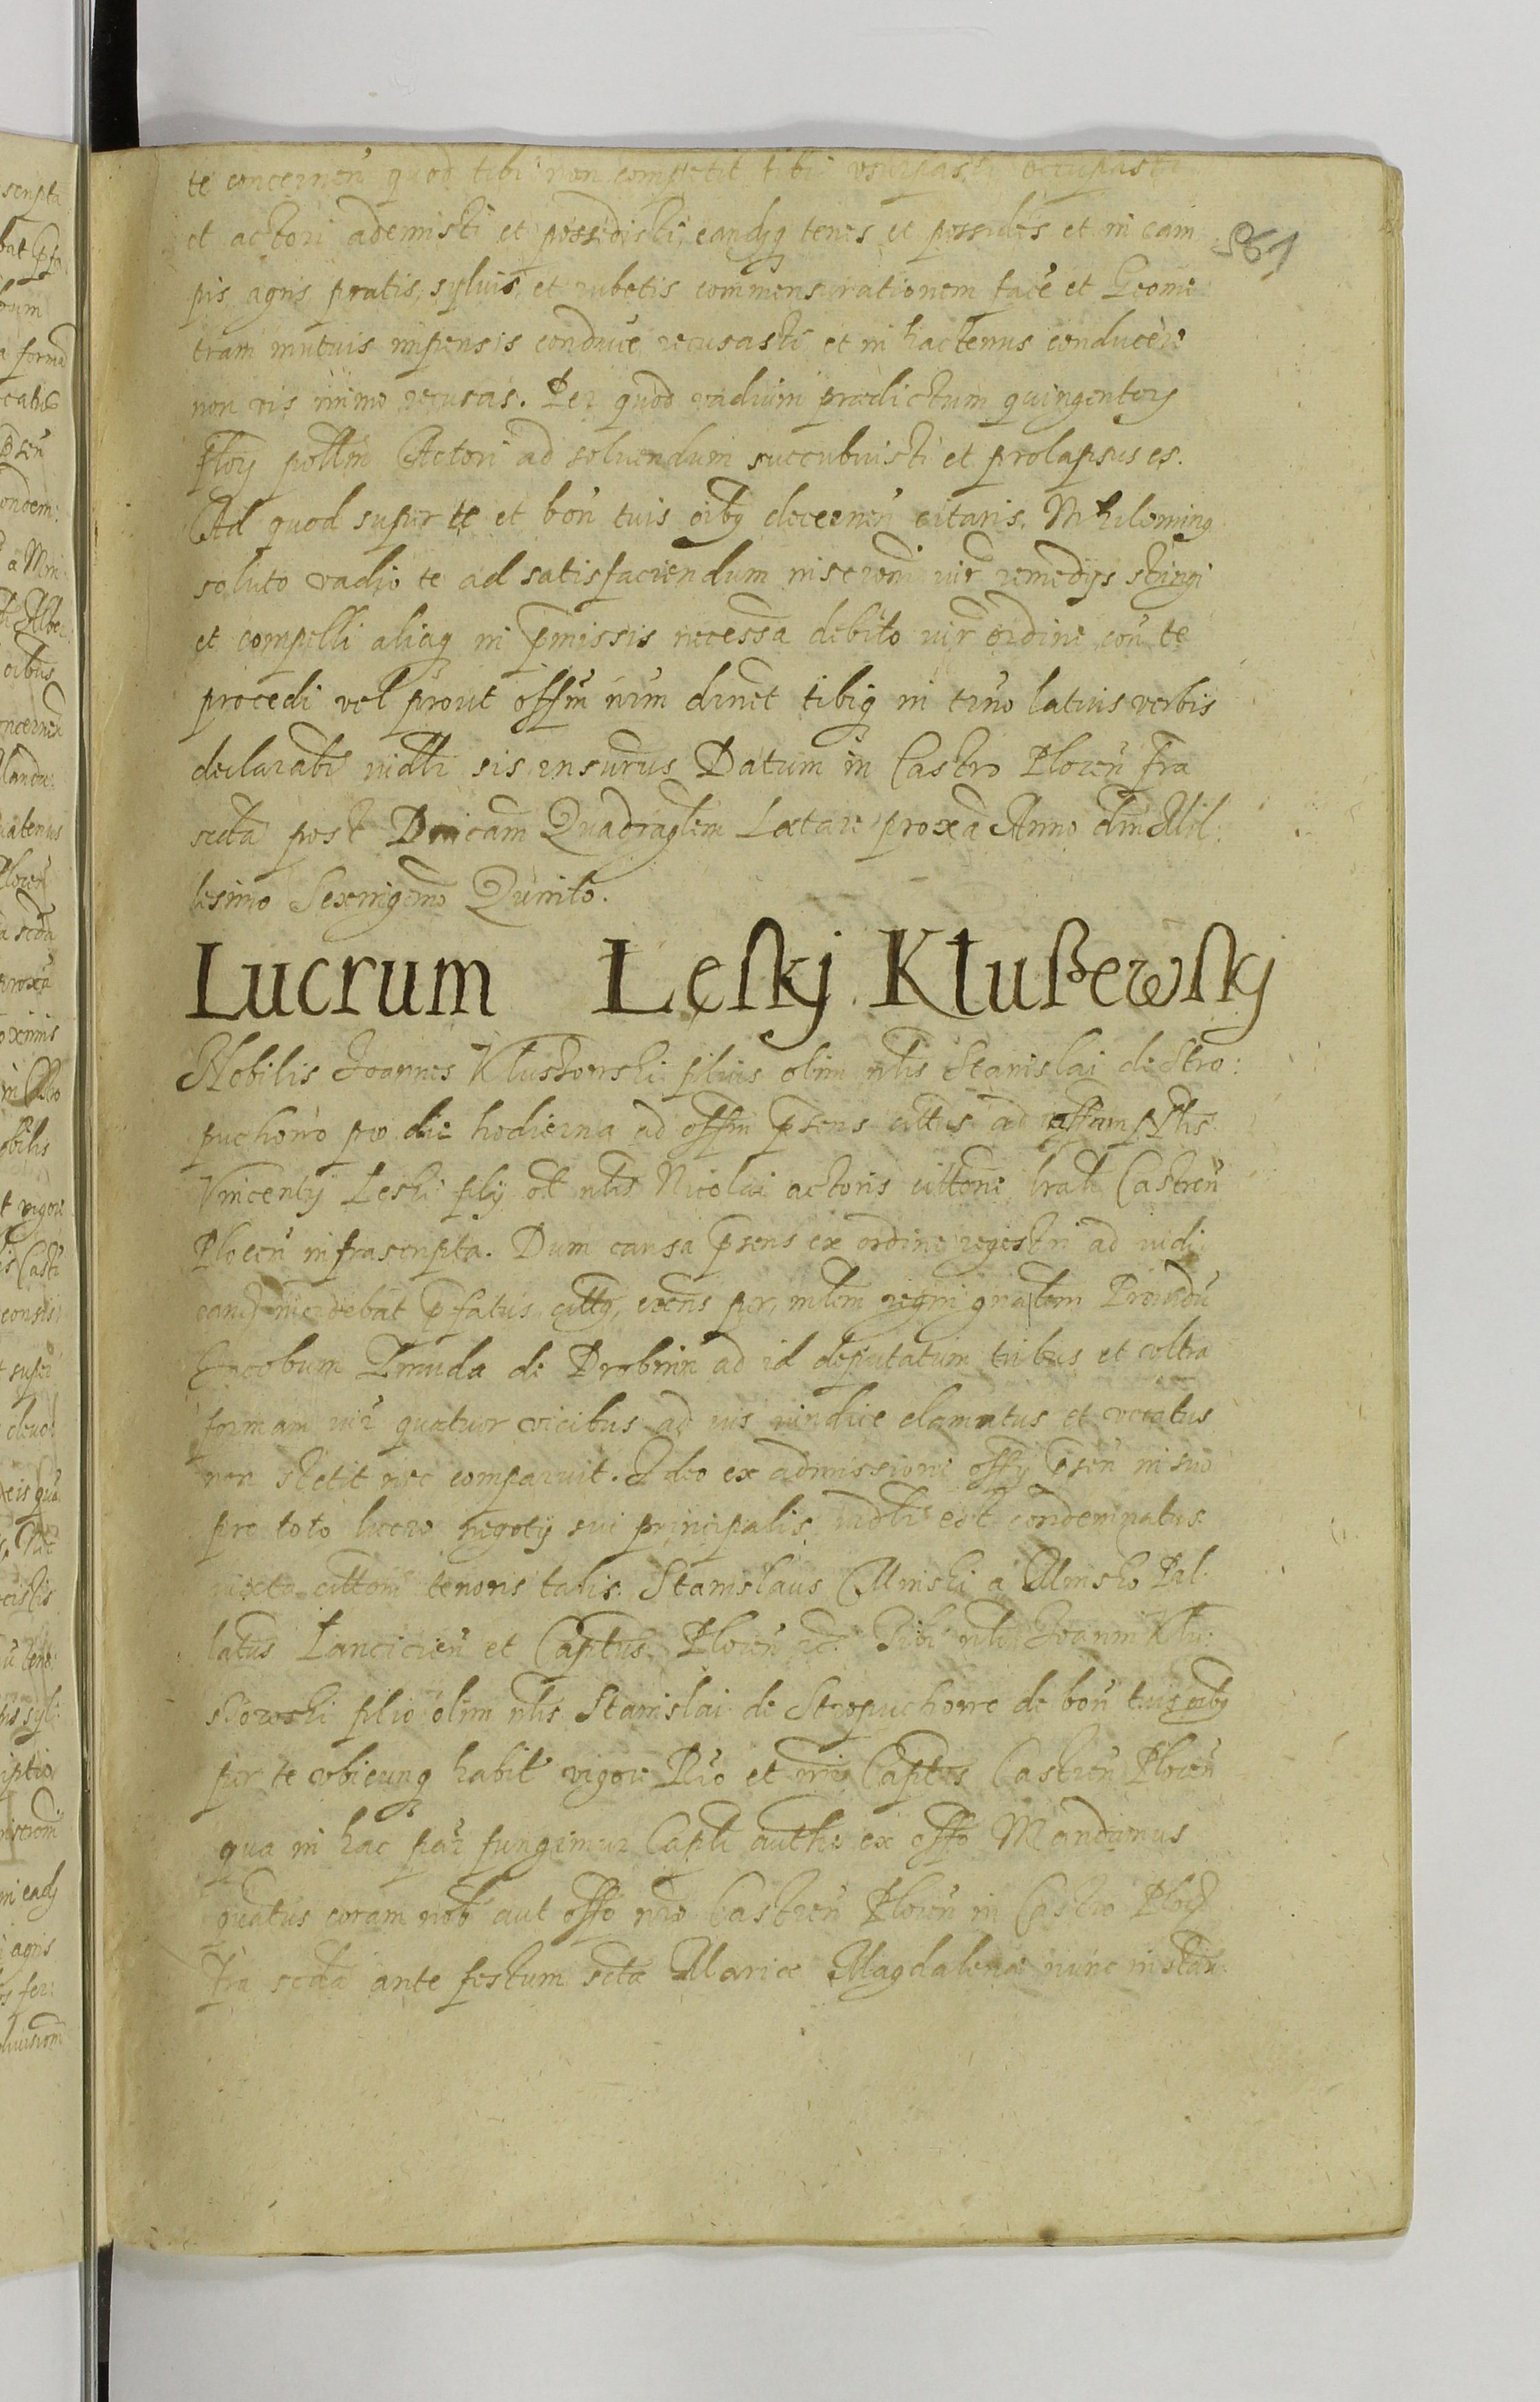 te concernen quod tibi non competit tibi usurpasti occupasti
et actori ademisti et possedisti eandjq tenes et possides et in cam
pis agris pratis, syluis et rubetis commensurationem facē et Geome
tram mutuis impensis conducē recusasti et in hactenus conducere
non vis immo recusas. Per quod vadium prædictum quingentorȝ
Florȝ pollīn Actori ad soluendum succubuisti et prolapsus es.
Ad quod super te et bon̄ tuis oibȝ decernen̄ citaris. Nihilominq
soluto vadio te ad satisfaciendum iur̄ remedys stringi
et compelli aliaq in p̄missis necessā debito iur̄ ordine con̄ te
procedi vel prout offīm nr̄m dinēt tibiq in tr̄no latius verbis
declarabr̄ iudlr̄ sis rnsurus Datum in Castro Plocen̄ fr̄a
sctā post Dn̄icam Quadraglēm Lætare proxā Anno dn̄i Mil:
lesimo Sexcingmo Quinto.
Lucrum Lęskj Kłuszewskj
Nobilis Joannes Klusōwski filius olim nlis Stanislai de Stro:
puchowo pro die hodierna ad offīm p̄sens cittus ad instam nlis
Vincentij Leski filij ol nlis Nicolai actoris cittone lrali Castren̄
Plocen̄ infrascripta. Dum causa p̄sens ex ordine regestri ad iudi
cand̄ p̄fatus cittȝ, per mlēm regni gnalem Prouidū
Jacobum Zmuda de Drobnin ad id deputatum tribus et vltra
formam iur̄ quatuor vicibus ad ius iuridice clamatus et vocatus
non stetit nec comparuit. Ideo ex admissione offij p̄sen̄ in suo
pro toto lucro negotij sui principalis iudlr̄ est condemnatus
iuxta cittonē tenoris talis. Stanislaus Minski a Minsko Pal:
latūs Lancicien̄ et Captus Plocen̄ &c. Tibi nli Joanni Klu:
sowski filio olim nlis Stanislai de Stropuchowo de bon̄ tuis oibȝ
per te vbicunq habit̄ vigore Rio et nr̄is Captus Castren̄ Plocen̄
qua in hac par̄ fungimur Capli authe ex offo Mandamus
quatūs coram nob̄ aut offo nr̄o Castren̄ Plocen̄ in Castro Ploc̄
fr̄a scdā ante festum sctæ Mariæ Magdalenæ nunc instan: